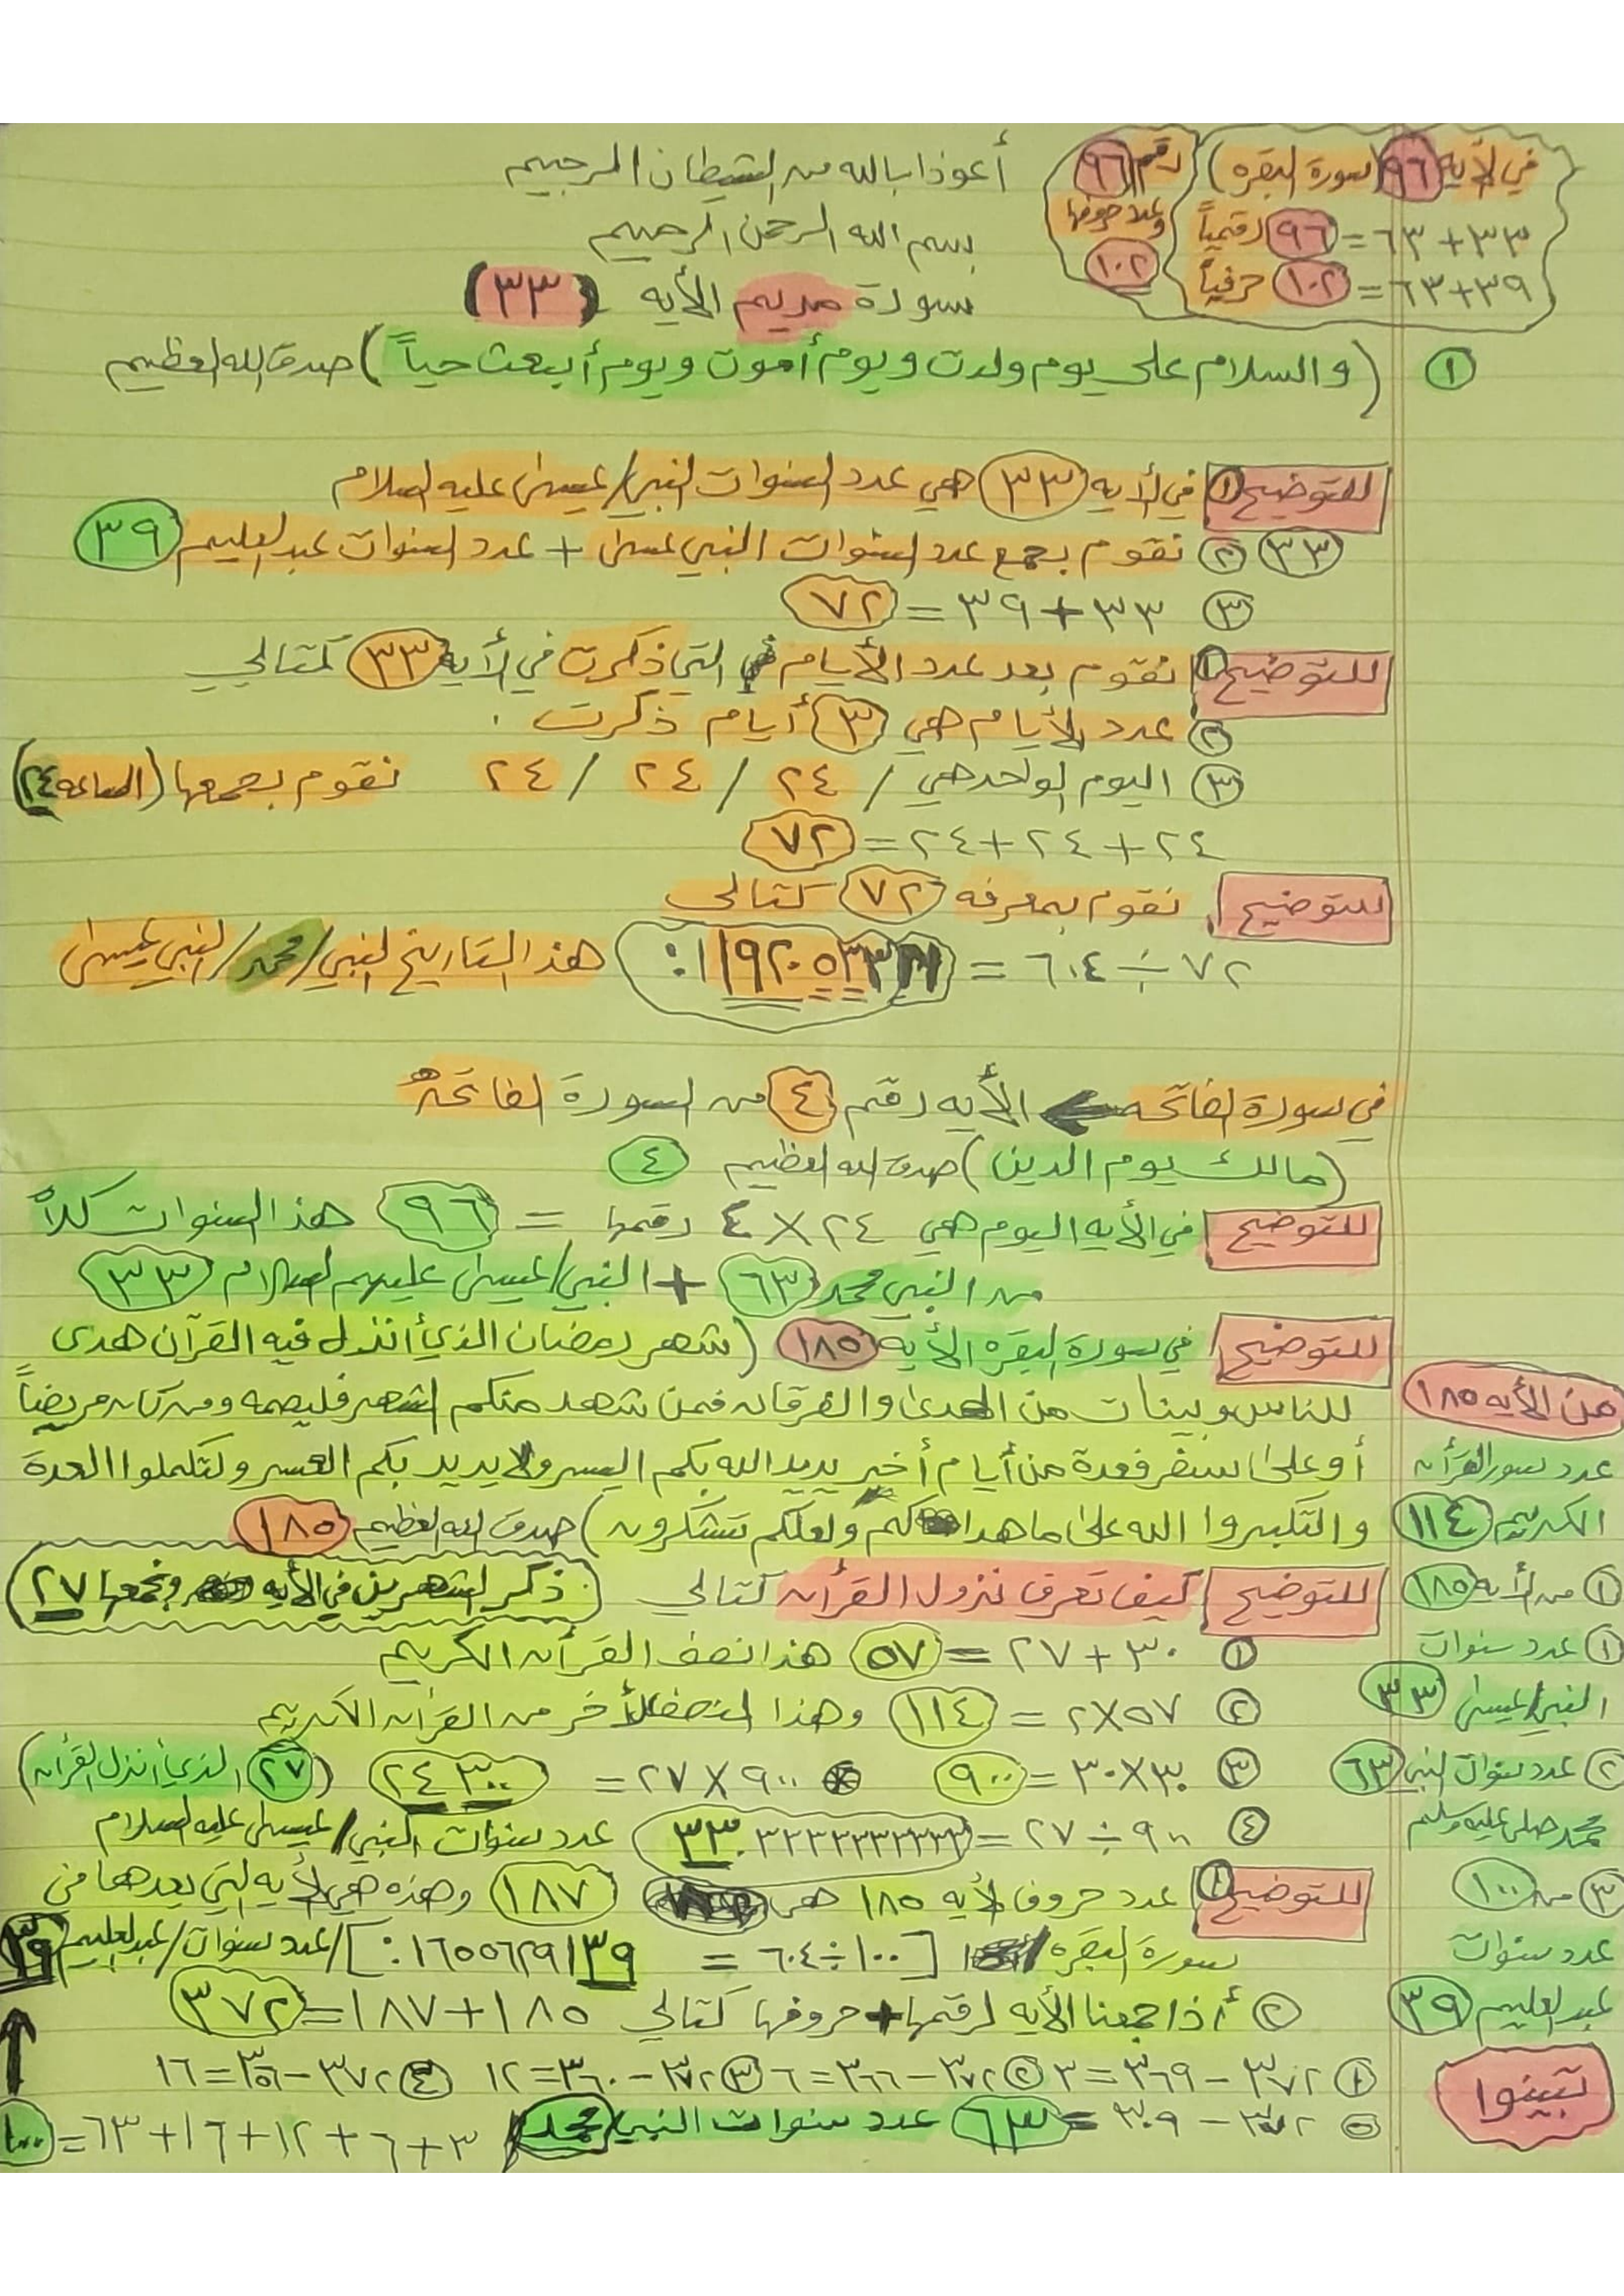 في الأيه ٩٦ (سورة البقره) رقم ٩٦
وعدد حروفها
٣٣+٦٣=٩٦ رقمياً
١٠٢
٣٩+٦٣=١٠٢ حرفياً
أعوذ بالله من الشيطان الرجيم
بسم الله الرحمن الرحيم
سورة مريم الأيه (٣٣)
١ (والسلام على يوم ولدت ويوم أموت ويوم أبعث حياً) صدق الله العظيم
للتوضيح ١ في الأيه ٣٣ هي عدد السنوات النبي/عيسى عليه السلام
٣٣ ٢ نقوم بجمع عدد السنوات النبي عيسى + عدد السنوات عبد العليم ٣٩
٣ ٣٣+٣٩=٧٢
للتوضيح ١ نقوم بعد عدد الأيام التي ذكرت في الأيه ٣٣ كتالي
٢ عدد الأيام هي ٣ أيام ذكرت .
٣ اليوم الواحد هي / ٢٤ / ٢٤ / ٢٤ نقوم بجمعها (الساعه ٢٤)
٢٤+٢٤+٢٤=٧٢
للتوضيح نقوم بمعرفه ٧٢ كتالي
٧٢÷٦٠٤= هذا التاريخ النبي/محمد/النبي عيسى
في سورة الفاتحه ← الأيه رقم ٤ من السورة الفاتحه
(مالك يوم الدين) صدق الله العظيم ٤
للتوضيح في الأيه اليوم هي ٢٤×٤ رقمها = ٩٦ هذا السنوات كلاً
من النبي محمد ٦٣ + النبي/عيسى عليهم السلام ٣٣
للتوضيح في سورة البقره الأيه ١٨٥ (شهر رمضان الذي أنزل فيه القرآن هدى
للناس وبينات من الهدى والفرقان فمن شهد منكم الشهر فليصمه ومن كان مريضاً
أو على سفر فعدة من أيام أخر يريد الله بكم اليسر ولا يريد بكم العسر ولتكملوا العدة
والتكبروا الله على ما هداكم ولعلكم تشكرون) صدق الله العظيم ١٨٥
للتوضيح كيف تعرف نزول القرأن كتالي (ذكر الشهرين في الأيه ونجمعها ٢٧)
١ ٣٠+٢٧=٥٧ هذا نصف القرأن الكريم
٢ ٥٧×٢=١١٤ وهذا النصف الأخر من القرأن الكريم
٣ ٣٠×٣٠=٩٠٠ ٩٠٠×٢٧= ٢٤٣٠٠ (٢٧ الذي أنزل القرأن)
٤ ٩٠٠÷٢٧=٣٣.٣٣٣٣٣٣٣٣٣٣ عدد سنوات النبي/عيسى عليه السلام
للتوضيح ١ عدد حروف الأيه ١٨٥ هي ١٨٧ وهذه هي الأيه التي بعدها في
سورة البقره [١٠٠÷٦٠٤= ٠.١٦٥٥٦٢٩١٣٩]/عدد سنوات/عبد العليم ٣٩
٢ أذا جمعنا الأيه لرقمها + حروفها كتالي ١٨٥+١٨٧=٣٧٢
١ ٣٧٢-٣٦٩=٣ ٢ ٣٧٢-٣٦٦=٦ ٣ ٣٧٢-٣٦٠=١٢ ٤ ٣٧٢-٣٥٦=١٦
٥ ٣٧٢-٣٠٩=٦٣ عدد سنوات النبي/محمد ٣+٦+١٢+١٦+٦٣=١٠٠
من الأيه ١٨٥
عدد سور القرأن
الكريم ١١٤
١ من الأيه ١٨٥
١ عدد سنوات
النبي/عيسى ٣٣
٢ عدد سنوات النبي ٦٣
محمد صلى عليه وسلم
٣ من ١٠٠
عدد سنوات
عبد العليم ٣٩
تبينوا